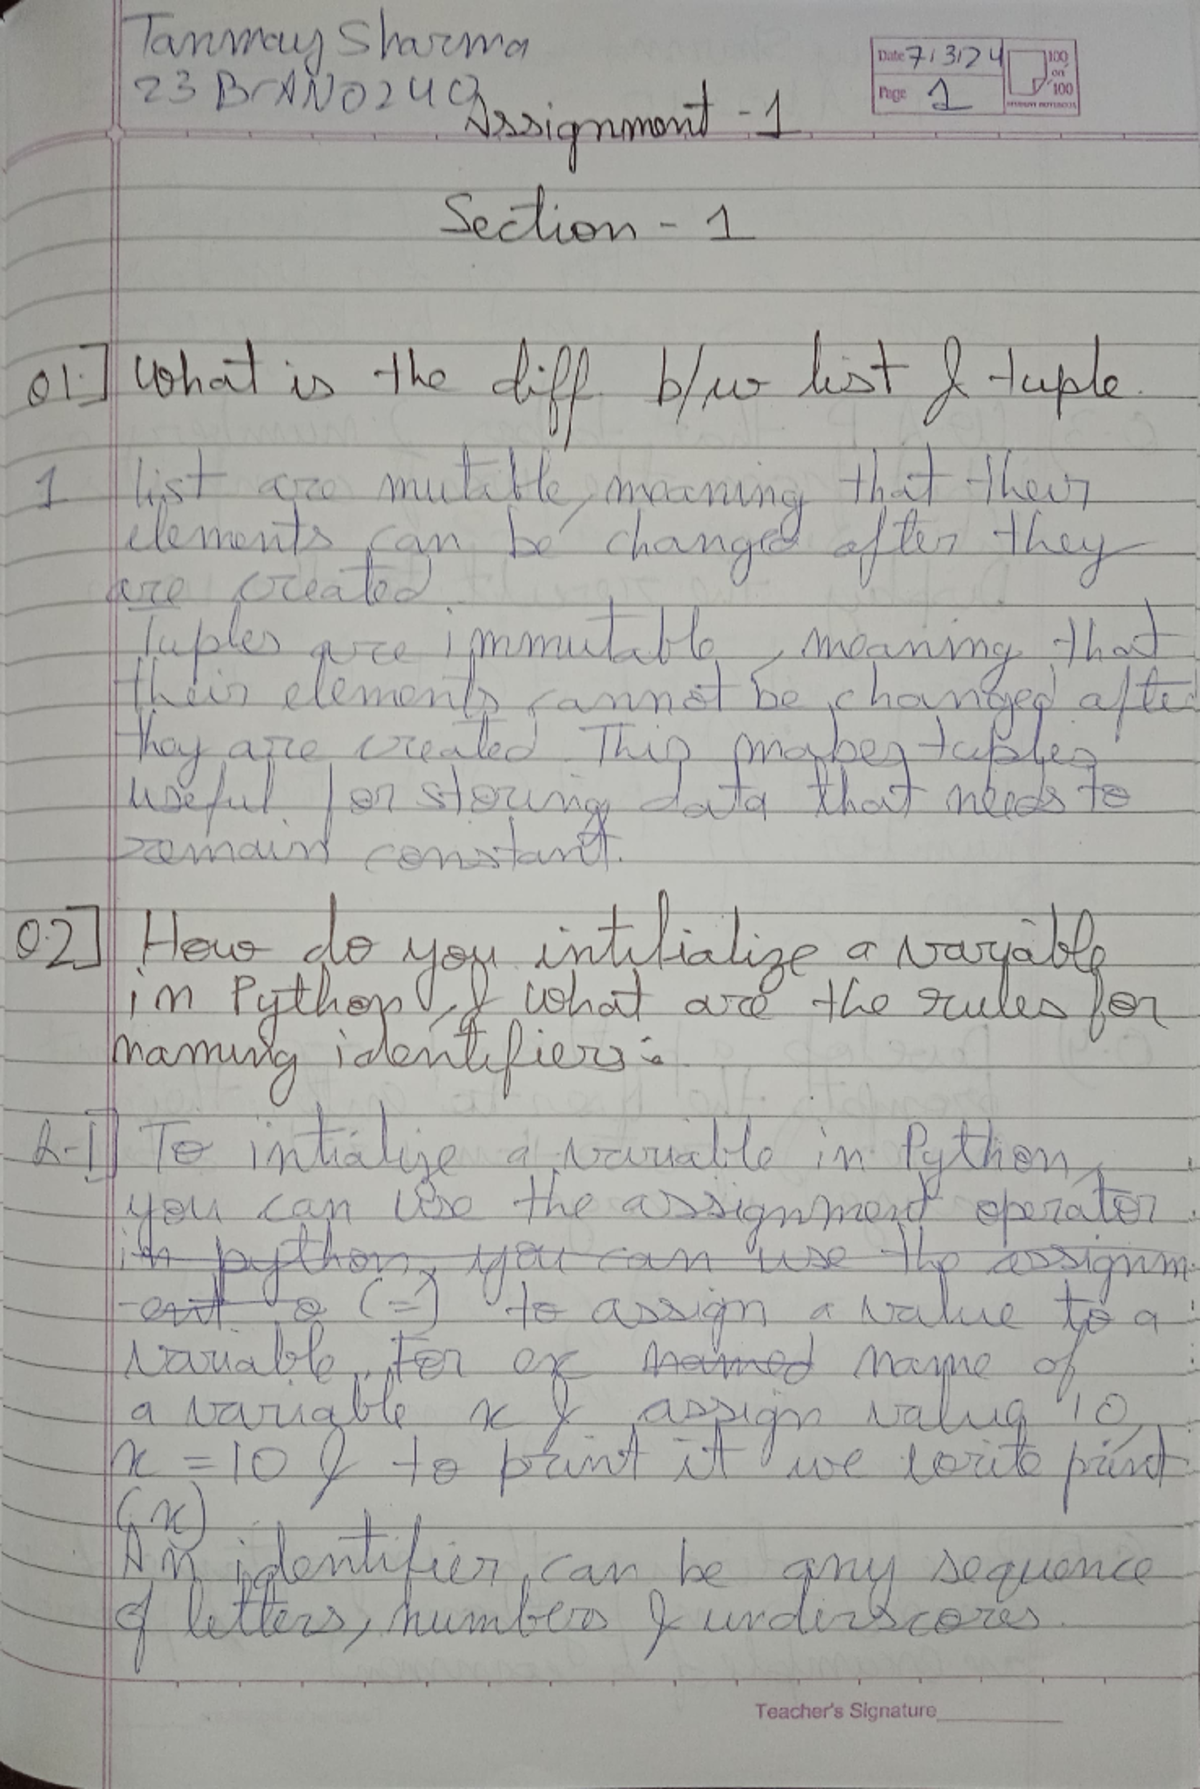 Tanmay Sharma
23BCAN0240
Date 7/3/24
Page 1
100
on
100
Assignment - 1
Section - 1
Q1.] What is the diff. b/w list & tuple.
1 list are mutable, meaning that their
elements can be changed after they
are created.
Tuples are immutable, meaning that
their elements cannot be changed after
they are created. This makes tuples
useful for storing data that needs to
remain constant.
Q.2] How do you intilialize a variable
in Python, & what are the rules for
naming identifiers:
A-1] To intialize a variable in Python,
you can use the assignment operator
in python, you can use the assignm-
-ent o (=) to assign a value to a
variable. For ex named name of
a variable x & assign value 10,
x = 10 & to print it we write print
(x)
An identifier can be any sequence
of letters, numbers & underscores.
Teacher's Signature